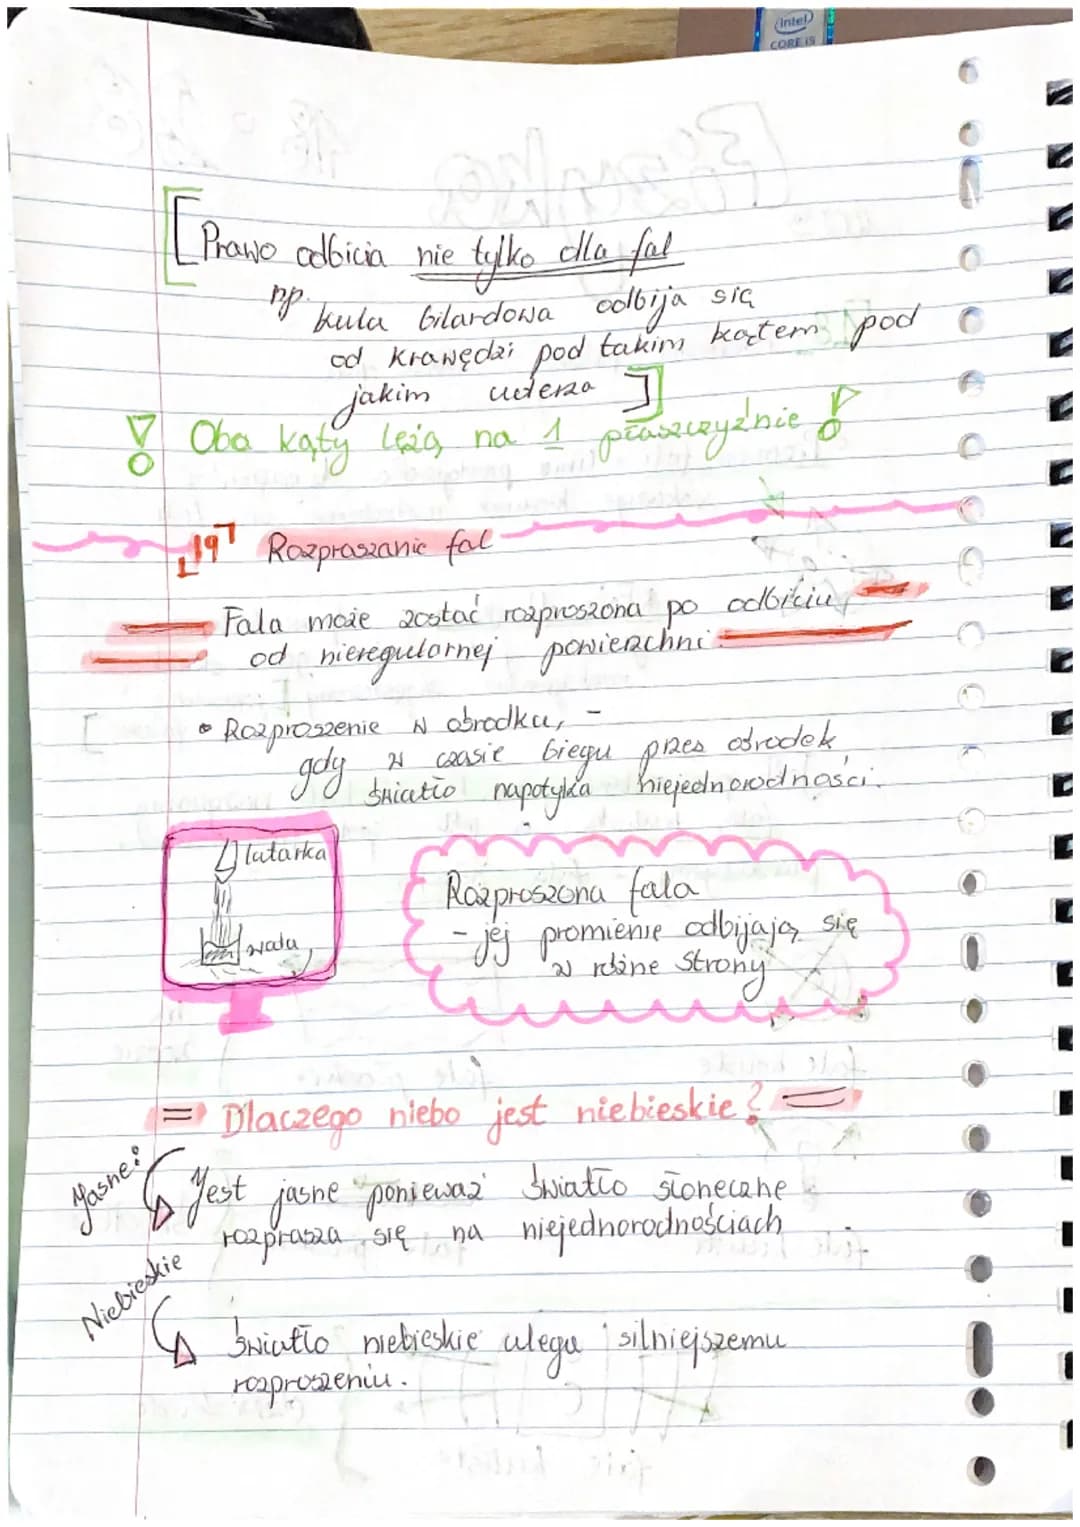 intel
CORE i5
[Prawo odbicia nie tylko dla fal
np. kula bilardowa odbija się
od krawędzi pod takim kątem pod
jakim uderza]
! Oba kąty leżą na 1 płaszczyźnie !
19 Rozpraszanie fal
Fala może zostać rozproszona po odbiciu
od nieregularnej powierzchni.
• Rozproszenie w ośrodku, -
gdy w czasie biegu przez ośrodek
światło napotyka niejednorodności.
latarka
woda
Rozproszona fala
- jej promienie odbijają się
w różne strony
= Dlaczego niebo jest niebieskie? =
Jasne:
Jest jasne ponieważ światło słoneczne
rozprasza się na niejednorodnościach.
Niebieskie
światło niebieskie ulega silniejszemu
rozproszeniu.